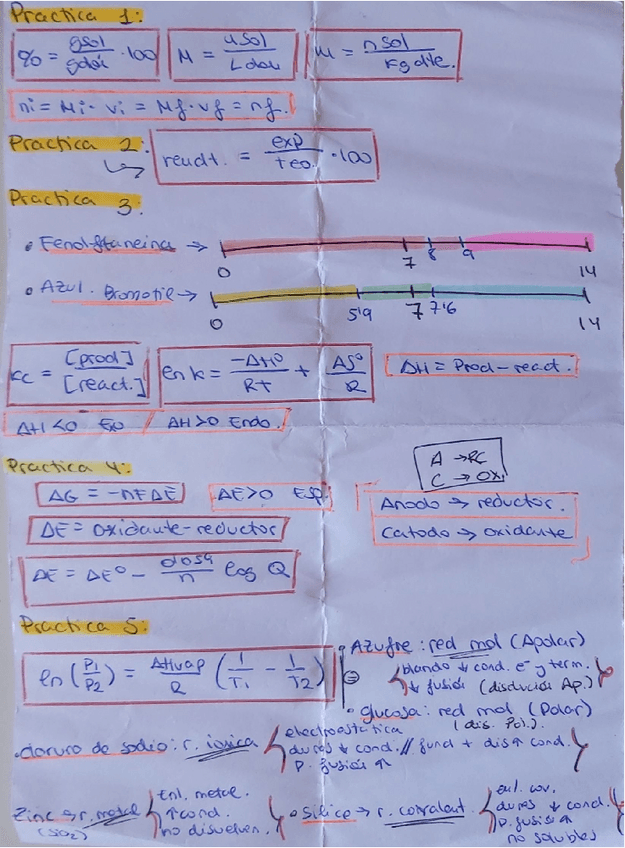 Practica 1:
% = gsol/gdisol · 100 M = nsol/Ldisol m = nsol/Kg dlte.
ni = Mi · Vi = Mf · Vf = nf.
Practica 2:
rendt. = exp/teo. · 100
Practica 3:
• Fenolftaneina →
0 7 8 9 14
• Azul. Bromotil →
0 5'9 7 7'6 14
Kc = [prod]/[react.] ln k = -ΔHº/RT + ΔSº/R ΔH = Prod - react.
ΔH < 0 Exo / ΔH > 0 Endo.
Practica 4:
A → RC
C → OXI
ΔG = -nFΔE ΔE > 0 Esp.
Anodo → reductor.
ΔE = Oxidante - reductor
Catodo → oxidante
ΔE = ΔEº - 0'059/n log Q
Practica 5:
ln (P1/P2) = ΔHvap/R (1/T1 - 1/T2)
• Azufre: red mol (Apolar)
blando ↓ cond. e⁻ y term.
↓ fusión (disolución Ap.)
• glucosa: red mol (Polar)
(dis. Pol.).
• cloruro de sodio: r. ionica
electroestática
dures ↓ cond. // fund + dis ↑ cond.
P. fusión ↑
Zinc → r. metal
(SiO2)
Enl. metal.
↑ cond.
no disuelven.
• Silice → r. covalent.
enl. cov.
dures ↓ cond.
P. fusión ↑
no solubles